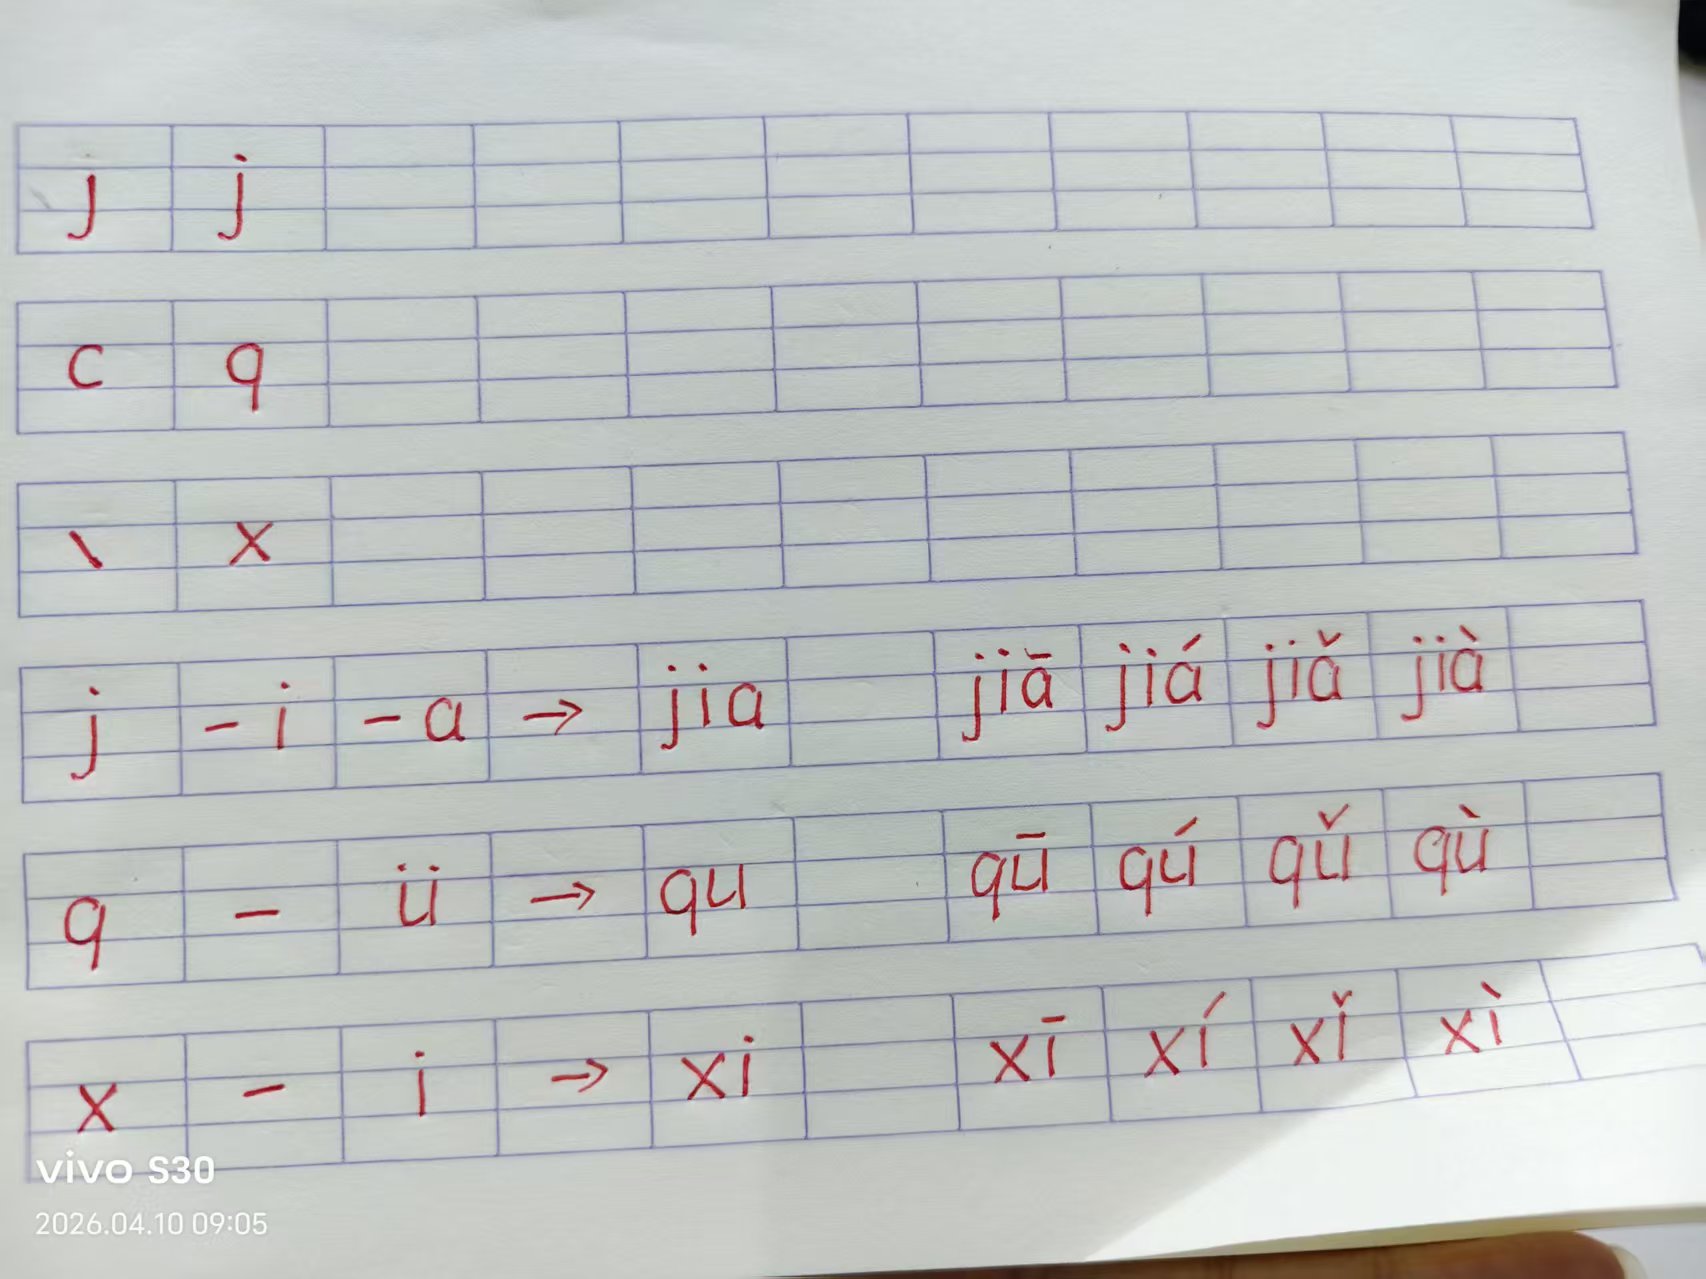 j j
c q
丶 x
j - i - a → jia jiā jiá jiǎ jià
q - ü → qu qū qú qǔ qù
x - i → xi xī xí xǐ xì
vivo S30
2026.04.10 09:05